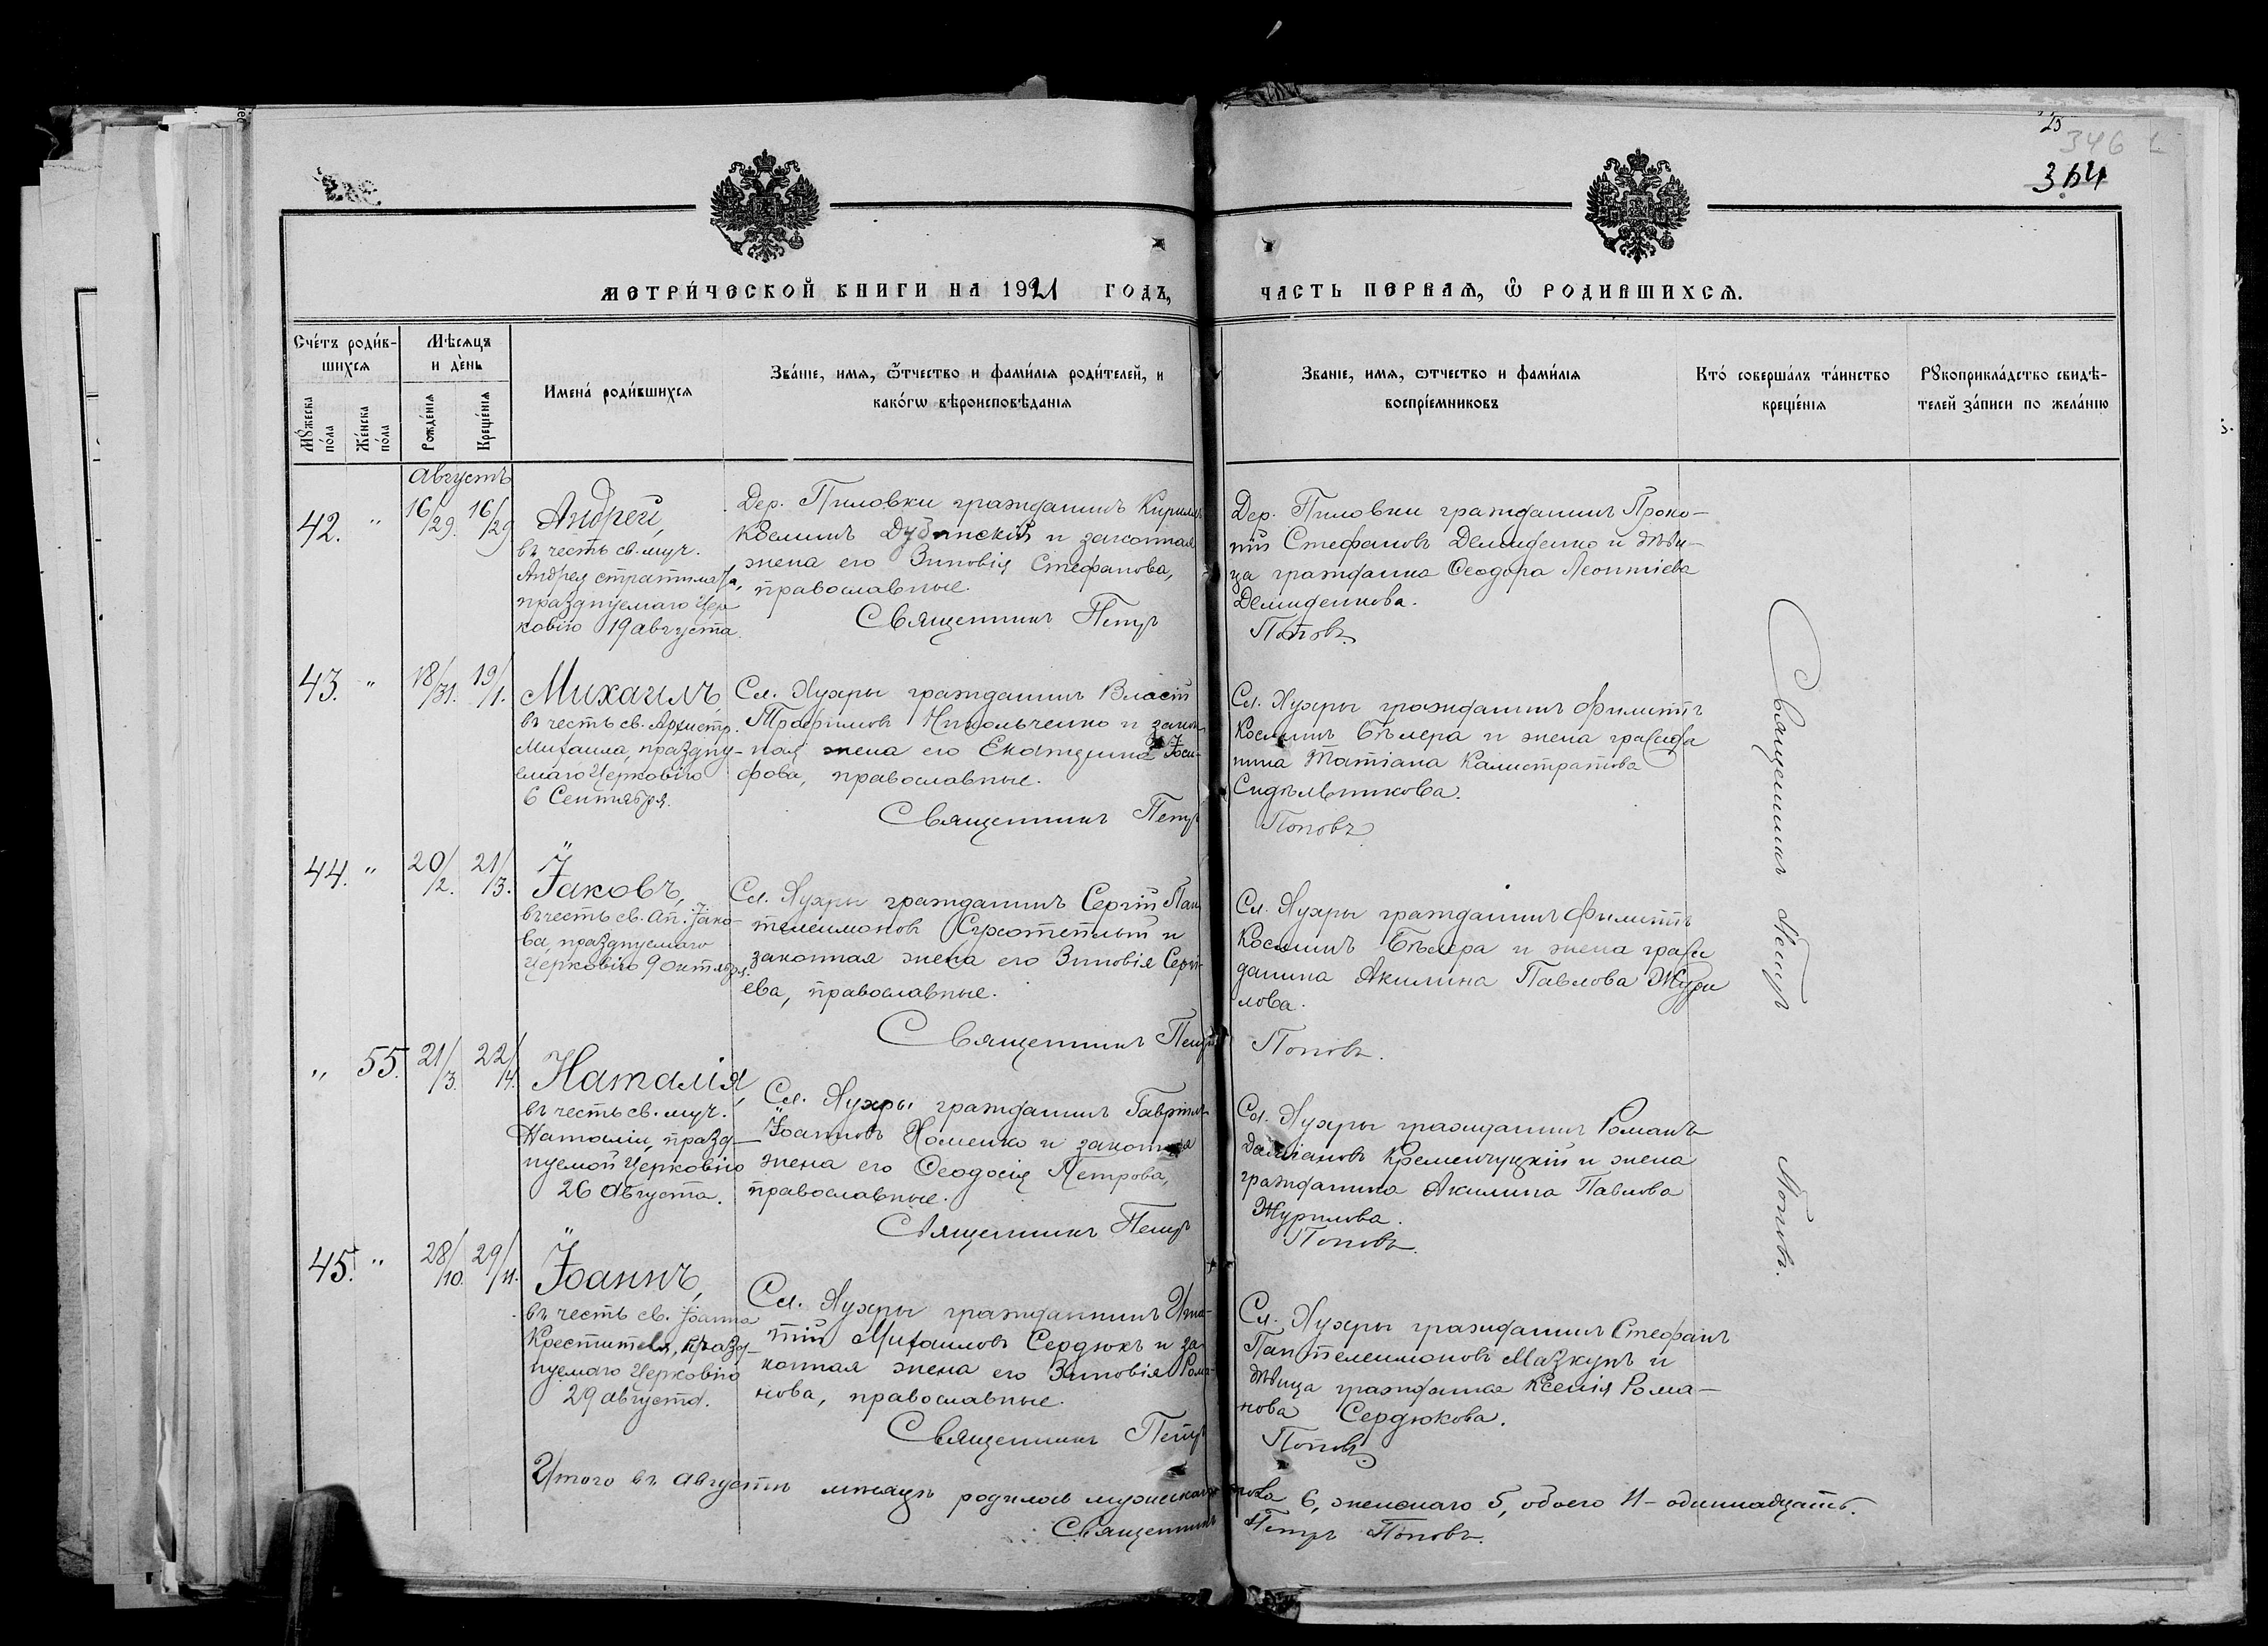 25
346
364
МЕТРИ́ЧЕСКОЙ КНИГИ НА 1921 ГОДЪ,
ЧАСТЬ ПЕРВАЯ, Ѡ РОДИВШИХСЯ.
Сче́тъ роди́в-
шихся
Мꙋ́жеска по́ла
Же́нска по́ла
Мѣсяцъ
и де́нь
Рожде́нія
Креще́нія
Имена́ роди́вшихся
Зва́ніе, имя, ѿчество и фами́лія роди́телей, и
како́гѡ вѣроисповѣ́данія
Званіе, имя, ѿтчество и фами́лія
воспріе́мниковъ
Кто́ соверша́лъ та́инство
креще́нія
Рꙋкоприкла́дство свидѣ́-
телей за́писи по жела́нію
Августъ
42. " 16/29. 16/29
Андрей,
въ честь св. муч.
Андрея стратилата,
празднуемаго Цер
ковію 19 августа.
Дер. Пиловки гражданинъ Кириллъ
Косминъ Дубинскій и законная
жена его Зиновія Стефанова,
православные.
Священникъ Петръ
Дер. Пиловки гражданинъ Проко-
пій Стефановъ Демиденко и дѣви-
ца гражданка Ѳеодора Леонтіева
Демиденкова.
Поповъ
43. " 18/31. 19/1.
Михаилъ,
въ честь св. Архистр.
Михаила, праздну-
емаго Церковію
6 Сентября.
Сл. Лухры гражданинъ Власій
Трофимовъ Никольченко и закон
ная жена его Екатерина Іоси-
фова, православные.
Священникъ Петръ
Сл. Лухры гражданинъ Филиппъ
Косминъ Бѣлера и жена гражда
нина Татіана Калистратова
Сидѣльникова.
Поповъ
44. " 20/2. 21/3.
Іаковъ,
въ честь св. Ап. Іако-
ва, празднуемаго
Церковію 9 октября.
Сл. Лухры гражданинъ Сергій Пан
телеимоновъ Сухотеплый и
законная жена его Зиновія Сергі-
ева, православные.
Священникъ Петръ
Сл. Лухры гражданинъ Филиппъ
Косминъ Бѣлера и жена граж
данина Акилина Павлова Жури
лова.
Поповъ.
" 55. 21/3. 22/4.
Наталія,
въ честь св. муч.
Наталіи, празд-
нуемой Церковію
26 Августа.
Сл. Лухры гражданинъ Гавріилъ
Іоанновъ Хоменко и законная
жена его Ѳеодосія Петрова,
православные.
Священникъ Петръ
Сл. Лухры гражданинъ Романъ
Даміановъ Кременчуцкій и жена
гражданина Акилина Павлова
Журилова.
Поповъ.
45. " 28/10. 29/11.
Іоаннъ,
въ честь св. Іоанна
Крестителя, празд-
нуемаго Церковію
29 августа.
Сл. Лухры гражданинъ Игна-
тій Михаиловъ Сердюкъ и за
конная жена его Зиновія Рома-
нова, православные.
Священникъ Петръ
Сл. Лухры гражданинъ Стефанъ
Пантелеимоновъ Мазкунъ и
дѣвица гражданка Ксенія Рома-
нова Сердюкова.
Поповъ
Священникъ Петръ Поповъ.
Итого въ августѣ мѣсяцѣ родилось мужескаго пола 6, женскаго 5, обоего 11 - одиннадцать.
Священникъ Петръ Поповъ.